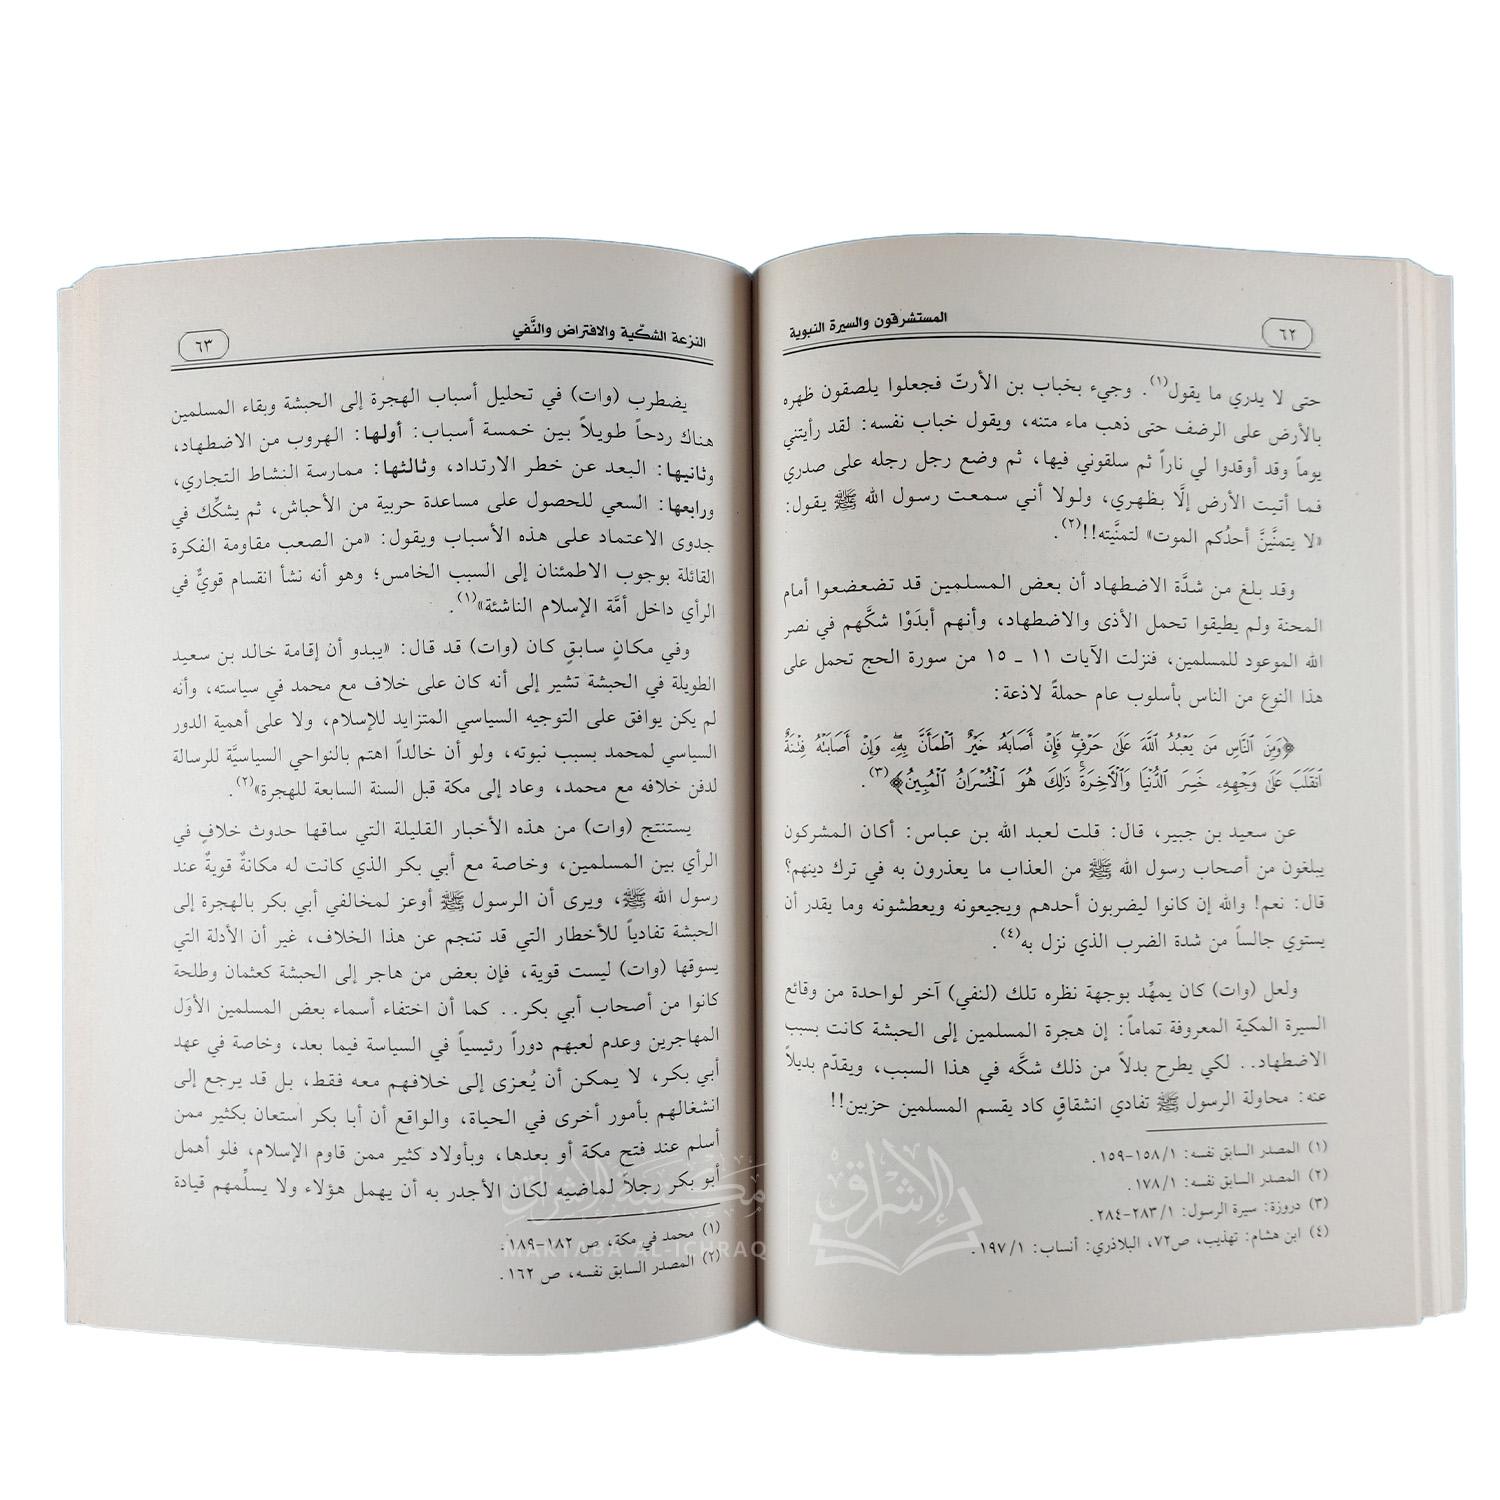 ٦٢
المستشرقون والسيرة النبوية
حتى لا يدري ما يقول(١). وجيء بخباب بن الأرتّ فجعلوا يلصقون ظهره
بالأرض على الرضف حتى ذهب ماء متنه، ويقول خباب نفسه: لقد رأيتني
يوماً وقد أوقدوا لي ناراً ثم سلقوني فيها، ثم وضع رجل رجله على صدري
فما أتيت الأرض إلَّا بظهري، ولولا أني سمعت رسول الله ﷺ يقول:
«لا يتمنَّينَّ أحدُكم الموت» لتمنَّيته!!(٢).
وقد بلغ من شدَّة الاضطهاد أن بعض المسلمين قد تضعضعوا أمام
المحنة ولم يطيقوا تحمل الأذى والاضطهاد، وأنهم أبدَوْا شكَّهم في نصر
الله الموعود للمسلمين، فنزلت الآيات ١١ - ١٥ من سورة الحج تحمل على
هذا النوع من الناس بأسلوب عام حملةً لاذعة:
﴿وَمِنَ النَّاسِ مَن يَعْبُدُ اللَّهَ عَلَىٰ حَرْفٍ فَإِنْ أَصَابَهُ خَيْرٌ اطْمَأَنَّ بِهِ وَإِنْ أَصَابَتْهُ فِتْنَةٌ
انقَلَبَ عَلَىٰ وَجْهِهِ خَسِرَ الدُّنْيَا وَالْآخِرَةَ ذَٰلِكَ هُوَ الْخُسْرَانُ الْمُبِينُ﴾(٣).
عن سعيد بن جبير، قال: قلت لعبد الله بن عباس: أكان المشركون
يبلغون من أصحاب رسول الله ﷺ من العذاب ما يعذرون به في ترك دينهم؟
قال: نعم! والله إن كانوا ليضربون أحدهم ويجيعونه ويعطشونه وما يقدر أن
يستوي جالساً من شدة الضرب الذي نزل به(٤).
ولعل (وات) كان يمهِّد بوجهة نظره تلك (لنفي) آخر لواحدة من وقائع
السيرة المكية المعروفة تماماً: إن هجرة المسلمين إلى الحبشة كانت بسبب
الاضطهاد.. لكي يطرح بدلاً من ذلك شكَّه في هذا السبب، ويقدّم بديلاً
عنه: محاولة الرسول ﷺ تفادي انشقاقٍ كاد يقسم المسلمين حزبين!!
(١) المصدر السابق نفسه: ١/ ١٥٨-١٥٩.
(٢) المصدر السابق نفسه: ١/ ١٧٨.
(٣) دروزة: سيرة الرسول: ١/ ٢٨٣-٢٨٤.
(٤) ابن هشام: تهذيب، ص٧٢، البلاذري: أنساب: ١/ ١٩٧.
النزعة الشكّية والافتراض والنَّفي
٦٣
يضطرب (وات) في تحليل أسباب الهجرة إلى الحبشة وبقاء المسلمين
هناك ردحاً طويلاً بين خمسة أسباب: أولها: الهروب من الاضطهاد،
وثانيها: البعد عن خطر الارتداد، وثالثها: ممارسة النشاط التجاري،
ورابعها: السعي للحصول على مساعدة حربية من الأحباش، ثم يشكِّك في
جدوى الاعتماد على هذه الأسباب ويقول: «من الصعب مقاومة الفكرة
القائلة بوجوب الاطمئنان إلى السبب الخامس؛ وهو أنه نشأ انقسام قويٌّ في
الرأي داخل أمَّة الإسلام الناشئة»(١).
وفي مكانٍ سابقٍ كان (وات) قد قال: «يبدو أن إقامة خالد بن سعيد
الطويلة في الحبشة تشير إلى أنه كان على خلاف مع محمد في سياسته، وأنه
لم يكن يوافق على التوجيه السياسي المتزايد للإسلام، ولا على أهمية الدور
السياسي لمحمد بسبب نبوته، ولو أن خالداً اهتم بالنواحي السياسيَّة للرسالة
لدفن خلافه مع محمد، وعاد إلى مكة قبل السنة السابعة للهجرة»(٢).
يستنتج (وات) من هذه الأخبار القليلة التي ساقها حدوث خلافٍ في
الرأي بين المسلمين، وخاصة مع أبي بكر الذي كانت له مكانةٌ قويةٌ عند
رسول الله ﷺ، ويرى أن الرسول ﷺ أوعز لمخالفي أبي بكر بالهجرة إلى
الحبشة تفادياً للأخطار التي قد تنجم عن هذا الخلاف، غير أن الأدلة التي
يسوقها (وات) ليست قوية، فإن بعض من هاجر إلى الحبشة كعثمان وطلحة
كانوا من أصحاب أبي بكر.. كما أن اختفاء أسماء بعض المسلمين الأوَل
المهاجرين وعدم لعبهم دوراً رئيسياً في السياسة فيما بعد، وخاصة في عهد
أبي بكر، لا يمكن أن يُعزى إلى خلافهم معه فقط، بل قد يرجع إلى
انشغالهم بأمور أخرى في الحياة، والواقع أن أبا بكر استعان بكثير ممن
أسلم عند فتح مكة أو بعدها، وبأولاد كثير ممن قاوم الإسلام، فلو أهمل
أبو بكر رجلاً لماضيه لكان الأجدر به أن يهمل هؤلاء ولا يسلِّمهم قيادة
(١) محمد في مكة، ص ١٨٢-١٨٩.
(٢) المصدر السابق نفسه، ص ١٦٢.
مكتبة الإشراق
MAKTABA AL-ICHRAQ
الإشراق